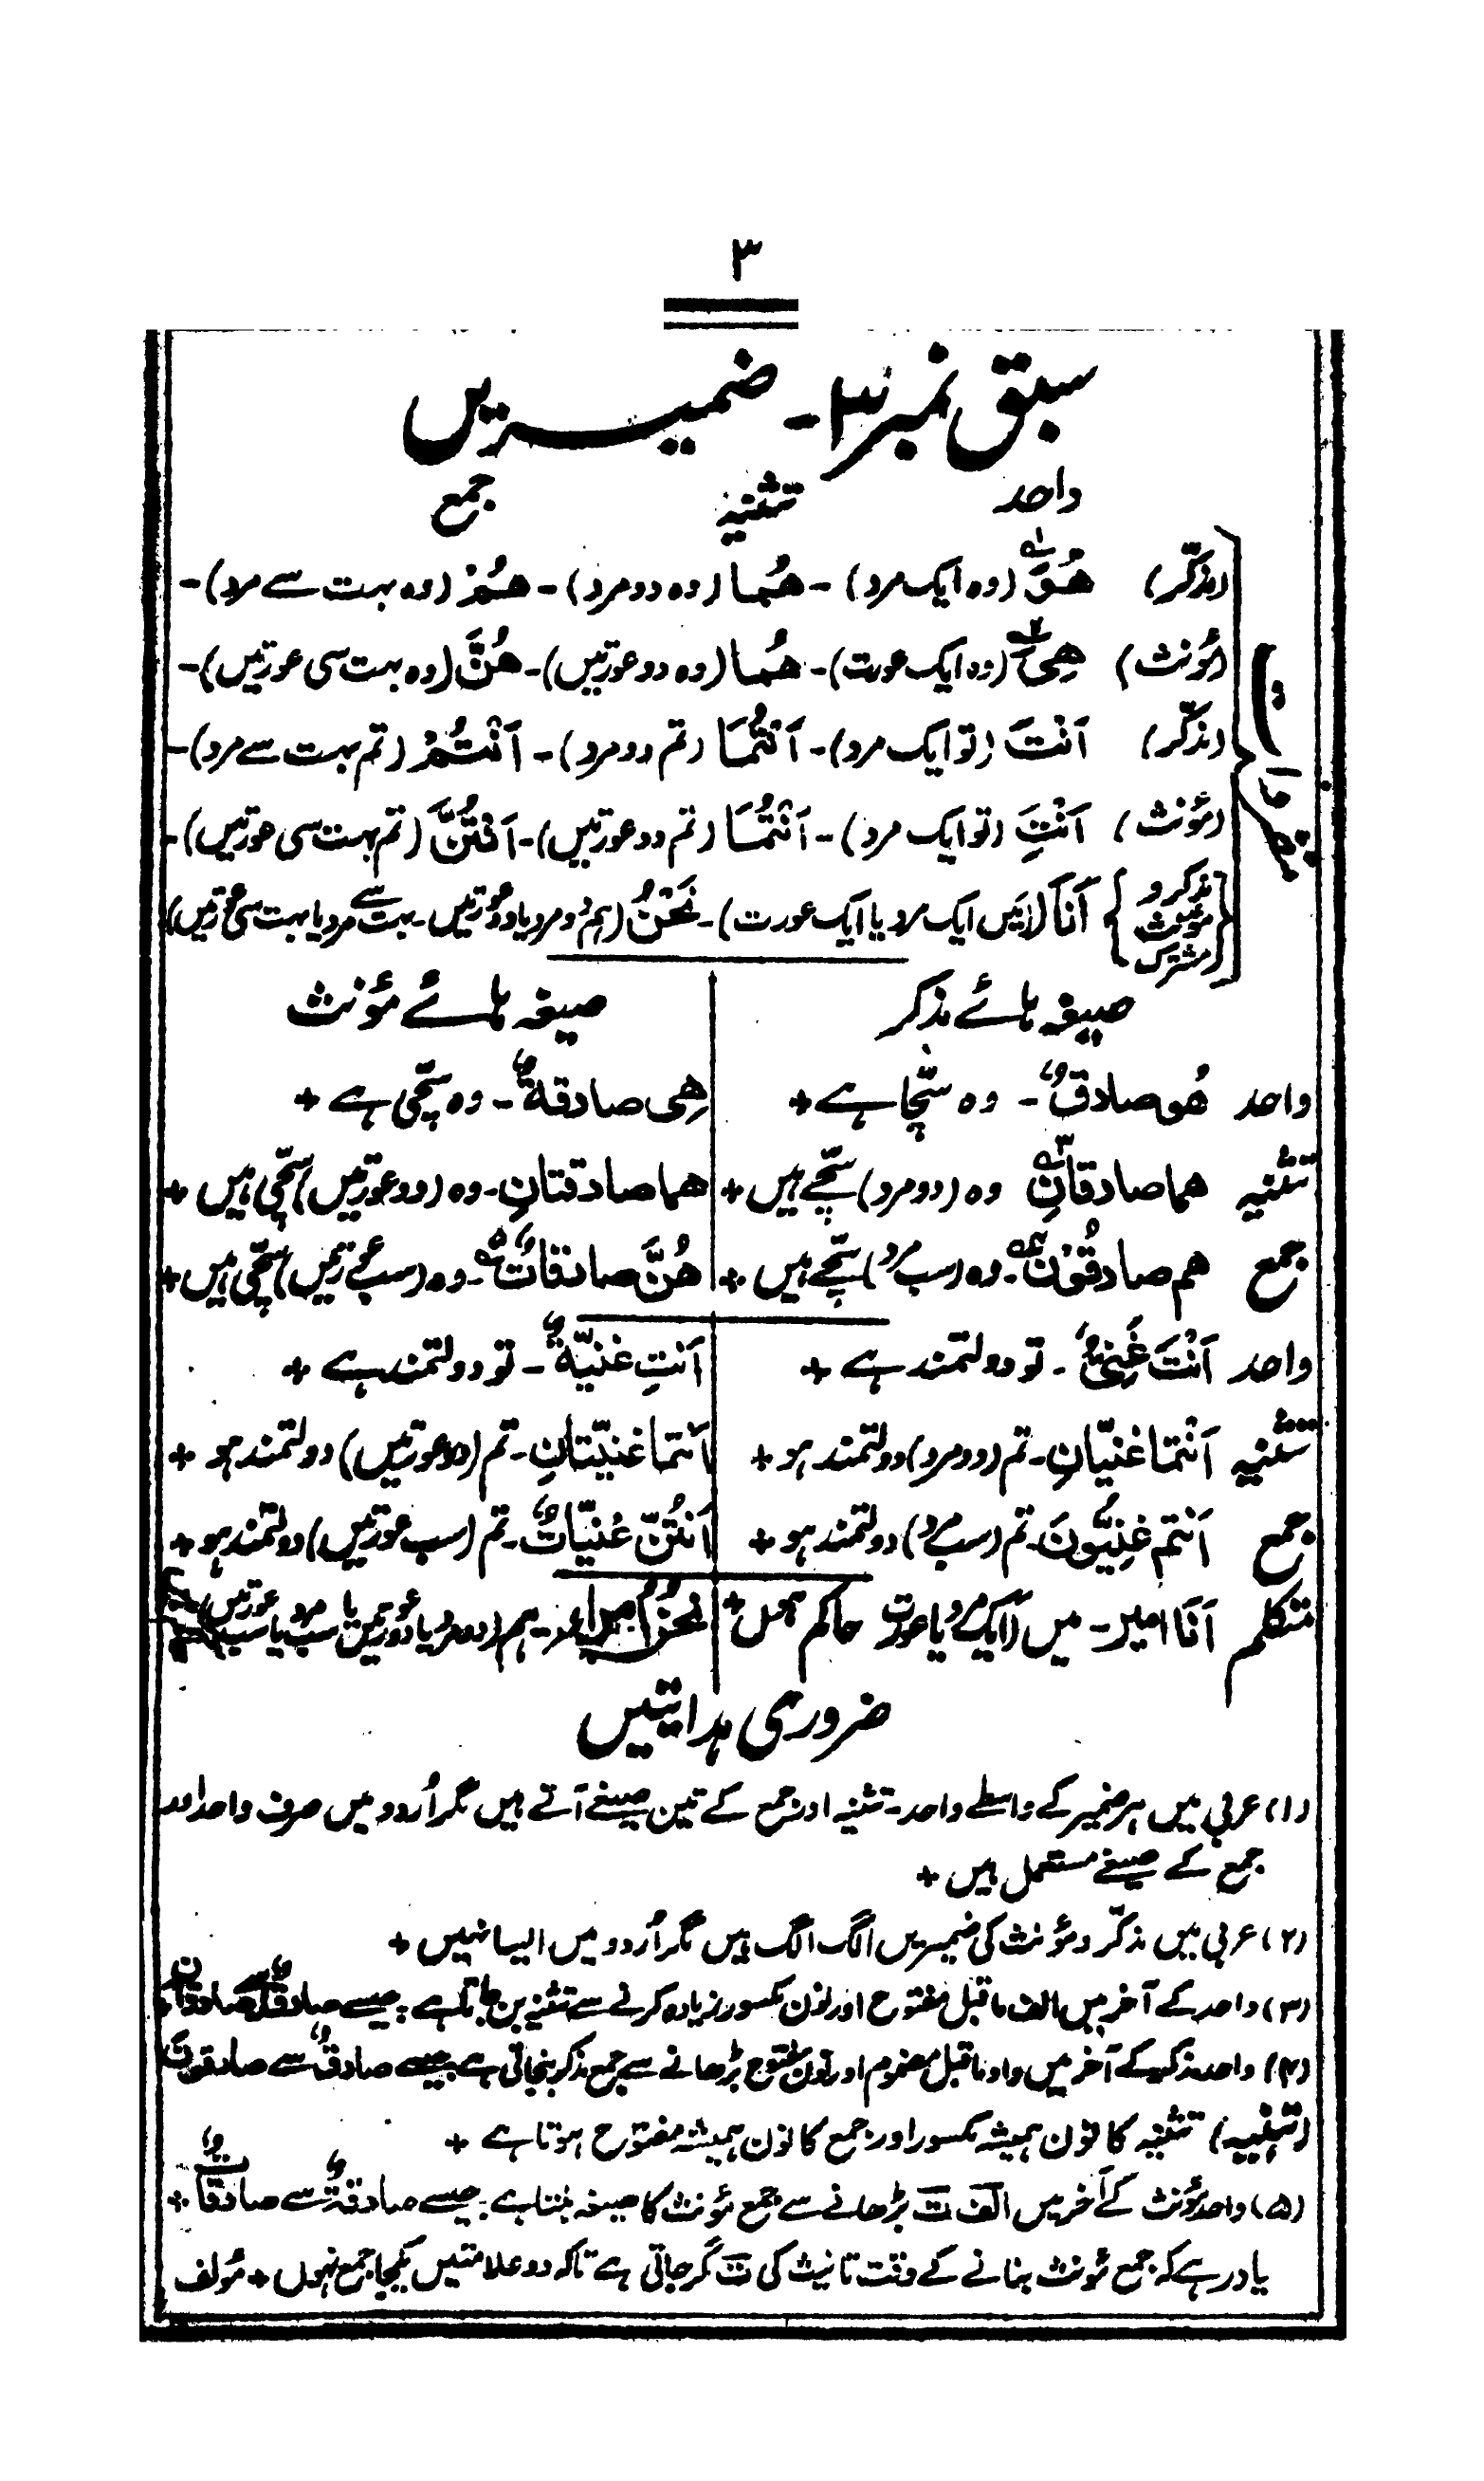 ۳
سبق نمبر ۳ - ضمیریں
واحد تثنیہ جمع
(مذکّر) هُوَ (وہ ایک مرد) - هُمَا (وہ دو مرد) - هُمْ (وہ بہت سے مرد) -
(مؤنث) هِیَ (وہ ایک عورت) - هُمَا (وہ دو عورتیں) - هُنَّ (وہ بہت سی عورتیں) -
(مذکّر) اَنْتَ (تو ایک مرد) - اَنْتُمَا (تم دو مرد) - اَنْتُمْ (تم بہت سے مرد) -
(مؤنث) اَنْتِ (تو ایک مرد) - اَنْتُمَا (تم دو عورتیں) - اَنْتُنَّ (تم بہت سی عورتیں) -
{مذکر و مؤنث مشترک} اَنَا (میں ایک مرد یا ایک عورت) - نَحْنُ (ہم دو مرد یا دو عورتیں - بہت سے مرد یا بہت سی عورتیں)
صیغہ ہائے مذکر صیغہ ہائے مؤنث
واحد هُو صادقٌ - وہ سچّا ہے + هِی صادقةٌ - وہ سچّی ہے +
تثنیہ هما صادقانِ وہ (دو مرد) سچّے ہیں + هما صادقتانِ - وہ (دو عورتیں) سچّی ہیں +
جمع هم صادقُوْنَ - وہ (سب مرد) سچّے ہیں + هُنَّ صادقاتٌ - وہ (سب عورتیں) سچّی ہیں +
واحد اَنْتَ غَنِیٌّ - تو دولتمند ہے + اَنتِ غنیّةٌ - تو دولتمند ہے +
تثنیہ اَنْتما غنیّانِ - تم (دو مرد) دولتمند ہو + اَنتما غنیّتانِ - تم (دو عورتیں) دولتمند ہو +
جمع اَنتم غنِیُّونَ - تم (سب مرد) دولتمند ہو + اَنتُنّ غنیّاتٌ - تم (سب عورتیں) دولتمند ہو +
متکلم اَنَا امیر - میں (ایک مرد یا عورت) حاکم ہوں + نحنُ اُمراء - ہم (دو مرد یا دو عورتیں یا سب مرد یا سب عورتیں)
ضروری ہدایتیں
(۱) عربی میں ہر ضمیر کے واسطے واحد - تثنیہ اور جمع کے تین صیغے آتے ہیں مگر اُردو میں صرف واحد اور
جمع کے صیغے مستعمل ہیں +
(۲) عربی میں مذکّر و مؤنث کی ضمیریں الگ الگ ہیں مگر اُردو میں ایسا نہیں +
(۳) واحد کے آخر میں الف ماقبل مفتوح اور نون مکسور زیادہ کرنے سے تثنیہ بن جاتا ہے جیسے صادقٌ سے صادقانِ
(۴) واحد مذکر کے آخر میں واو ماقبل مضموم اور نون مفتوح بڑھانے سے جمع مذکر بنجاتی ہے جیسے صادقٌ سے صادقونَ
(تنبیہ) تثنیہ کا نون ہمیشہ مکسور اور جمع کا نون ہمیشہ مفتوح ہوتا ہے +
(۵) واحد مؤنث کے آخر میں الف ت بڑھانے سے جمع مؤنث کا صیغہ بنتا ہے جیسے صادقةٌ سے صادقاتٌ +
یاد رہے کہ جمع مؤنث بنانے کے وقت تانیث کی ت گر جاتی ہے تاکہ دو علامتیں یکجا جمع نہوں + مؤلف